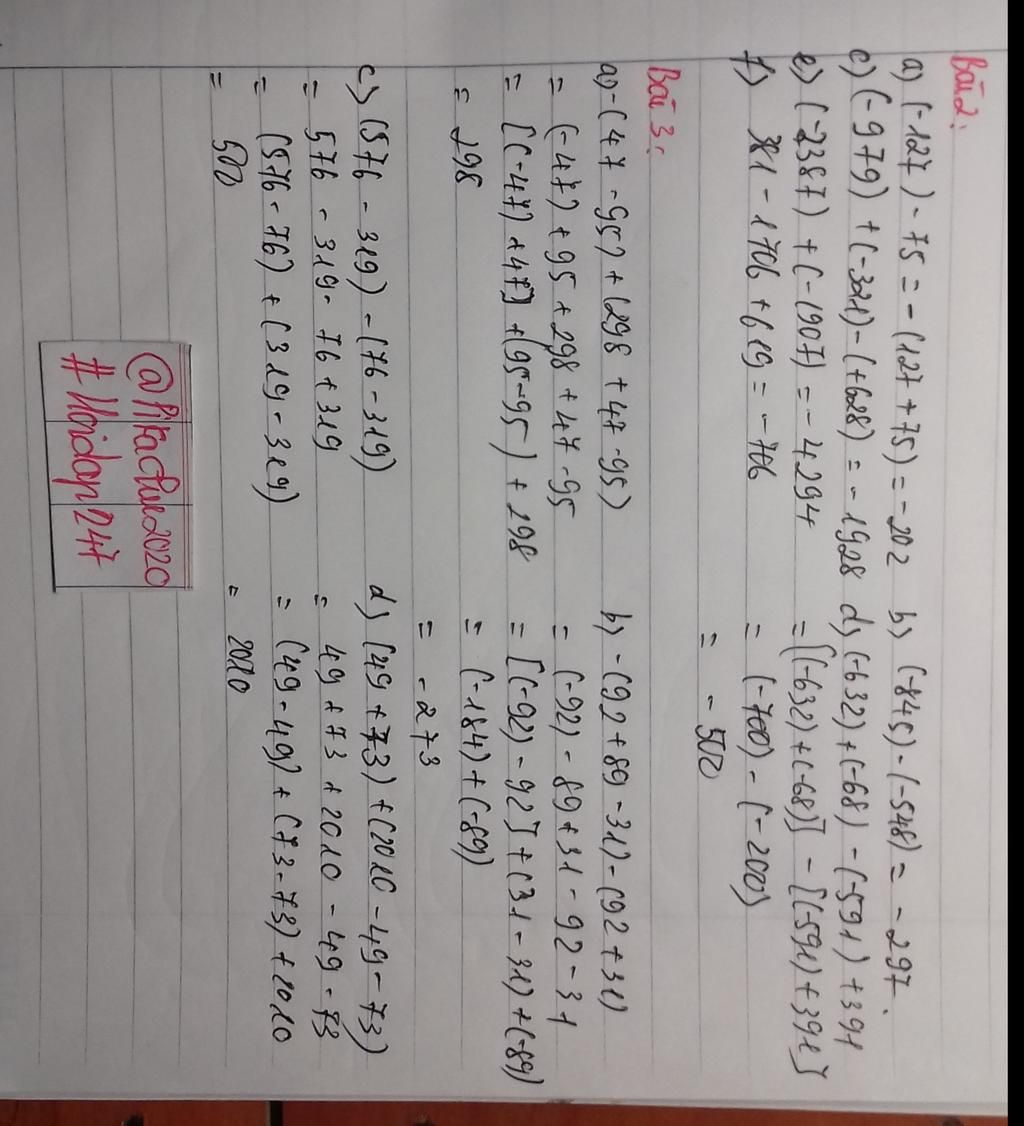 Bài 2:
a) (-127) - 75 = -(127+75) = -202 b) (-845) - (-548) = -297.
c) (-979) + (-321) - (+628) = -1928 d) (-632) + (-68) - (-591) + 391
e) (-2387) + (-1907) = -4294 = [(-632) + (-68)] - [(-591) + 391]
f) 381 - 1706 + 619 = -706 = (-700) - (-200)
= -500
Bài 3:
a) -(47 - 95) + (298 + 47 - 95) b) -(92 + 89 - 31) - (92 + 31)
= (-47) + 95 + 298 + 47 - 95 = (-92) - 89 + 31 - 92 - 31
= [(-47) + 47] + (95 - 95) + 298 = [(-92) - 92] + (31 - 31) + (-89)
= 298 = (-184) + (-89)
= -273
c) (576 - 319) - (76 - 319) d) (49 + 73) + (2010 - 49 - 73)
= 576 - 319 - 76 + 319 = 49 + 73 + 2010 - 49 - 73
= (576 - 76) + (319 - 319) = (49 - 49) + (73 - 73) + 2010
= 500 = 2010
@Pikachu2020
#Hoidap247